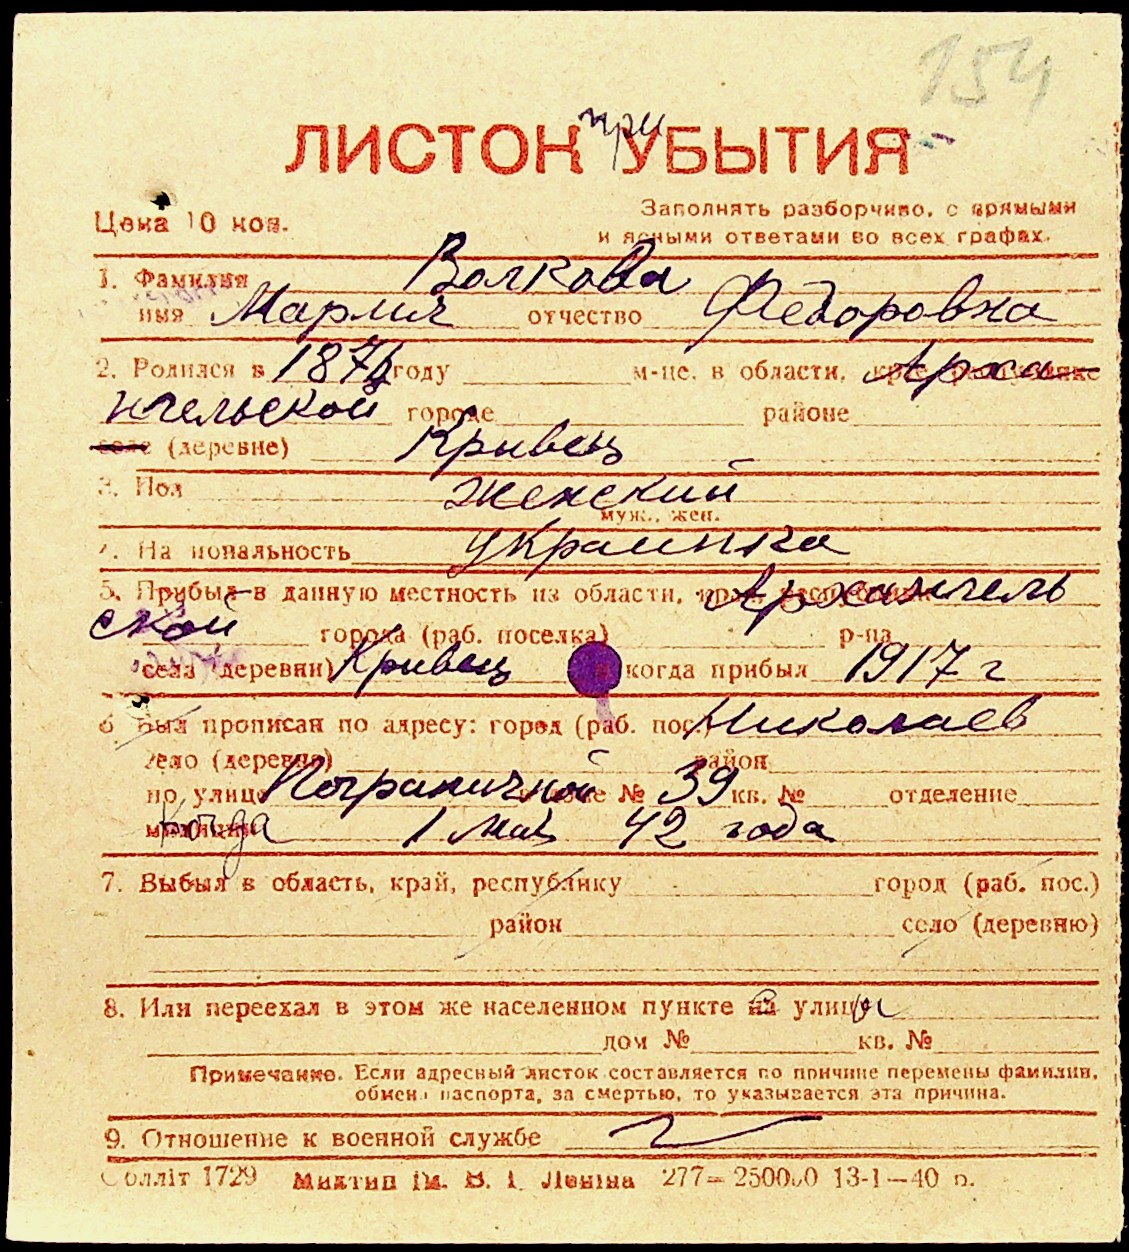 154
ЛИСТОК при УБЫТИЯ
Цена 10 коп.
Заполнять разборчиво, с прямыми
и ясными ответами во всех графах.
1. Фамилия Волкова
имя Мария отчество Федоровна
2. Родился в 1876 году м-це, в области, Арха
нгельской городе районе
селе (деревне) Кривец
3. Пол женский
муж., жен.
4. Национальность украинка
5. Прибыл в данную местность из области, края, республики Архангель
ской города (раб. поселка) р-на
села (деревни) Кривец и когда прибыл 1917 г
6 Был прописан по адресу: город (раб. пос.) Николаев
село (деревня) район
по улице Пограничной доме № 39 кв. № отделение
милиции Когда 1 мая 42 года
7. Выбыл в область, край, республику город (раб. пос.)
район село (деревню)
8. Или переехал в этом же населенном пункте на улицу с и
дом № кв. №
Примечание. Если адресный листок составляется по причине перемены фамилии,
обмена паспорта, за смертью, то указывается эта причина.
9. Отношение к военной службе
Облліт 1729 Миктип ім. В. І. Леніна 277–250000 13-1–40 р.